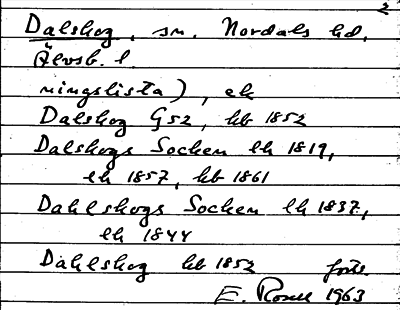 2
Dalskog, sn. Nordals hd,
Älvsb. l.
ningslista), ek
Dalskog G52, kb 1852
Dalskogs Socken lh 1819,
lh 1857, kb 1861
Dahlskogs Socken lh 1837,
lh 1844
Dahlskog kb 1852 forts.
E. Rosell 1963